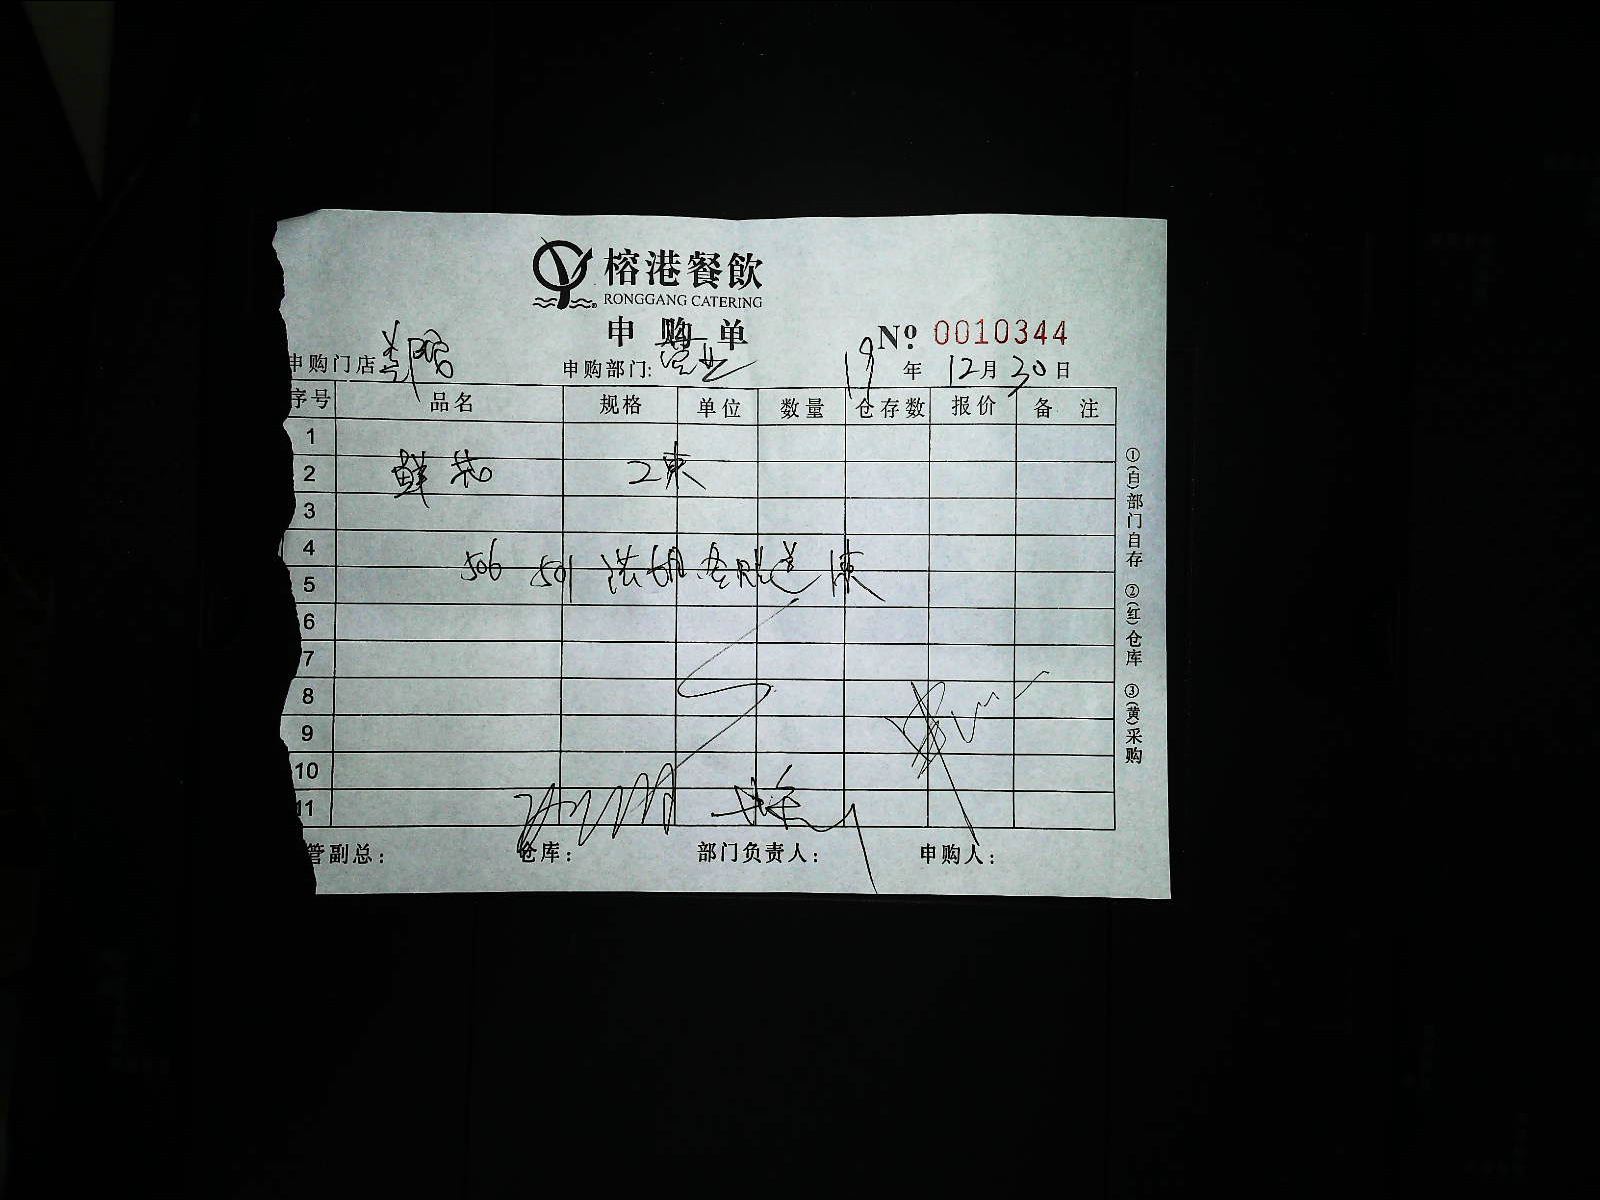 榕港餐飲
RONGGANG CATERING
申购单
№ 0010344
申购门店 申购部门: 营业 19年12月30日
序号 品名 规格 单位 数量 仓存数 报价 备注
1
2 鲜花 2束
3
4
506 501
5
6
7
8
9
10
11
管副总: 仓库: 部门负责人: 申购人:
①(白)部门自存 ②(红)仓库 ③(黄)采购